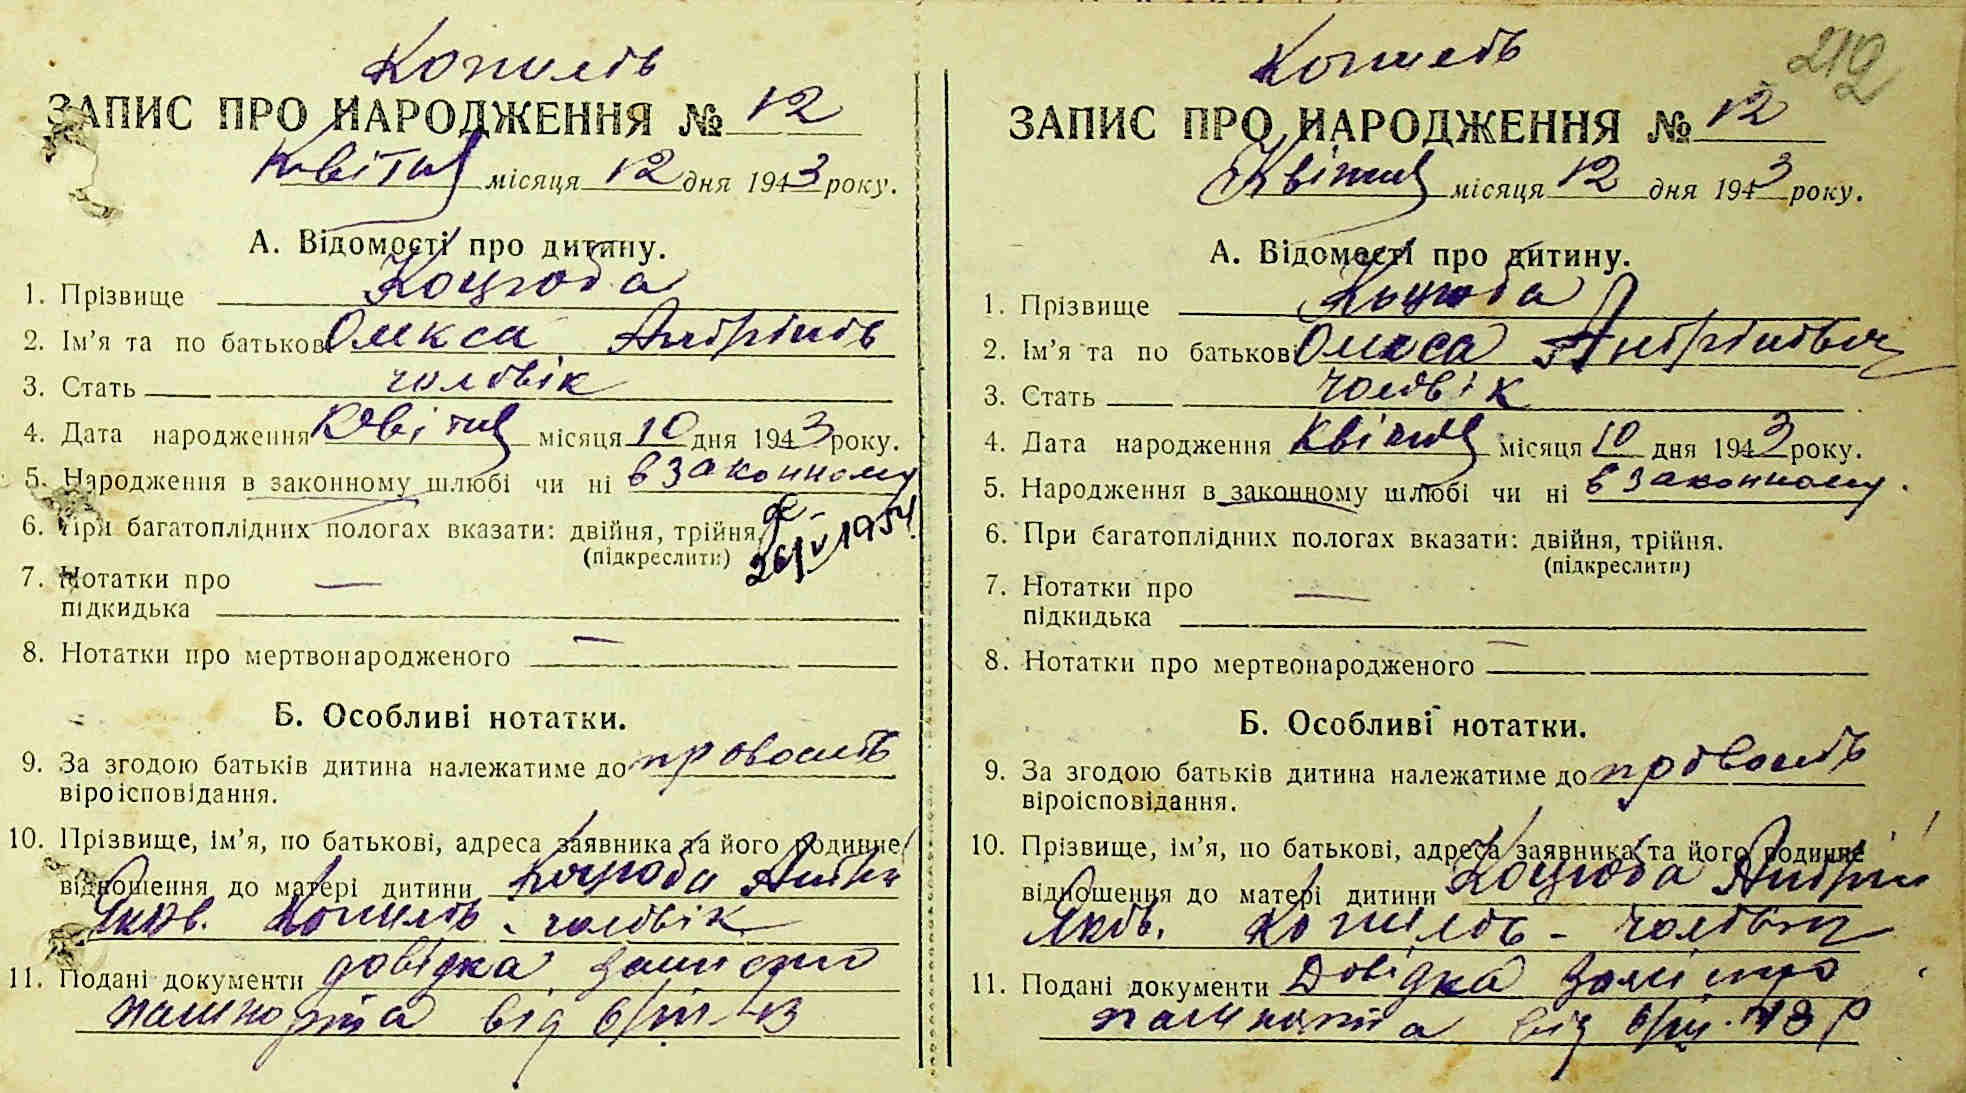 Копилів
ЗАПИС ПРО НАРОДЖЕННЯ № 12
Квітня місяця 12 дня 1943 року.
А. Відомості про дитину.
1. Прізвище Коцюба
2. Ім'я та по батькові Олекса Андрієв
3. Стать чоловік
4. Дата народження Квітня місяця 10 дня 1943 року.
5. Народження в законному шлюбі чи ні в законному
6. При багатоплідних пологах вказати: двійня, трійня.
(підкреслити)
26/V 1954
7. Нотатки про —
підкидька
8. Нотатки про мертвонародженого —
Б. Особливі нотатки.
9. За згодою батьків дитина належатиме до правосл
віроісповідання.
10. Прізвище, ім'я, по батькові, адреса заявника та його родинне
відношення до матері дитини Коцюба Андрій
Яков. Копилів - чоловік
11. Подані документи довідка замісто
пашпорта від 6/III 43
212
Копилів
ЗАПИС ПРО НАРОДЖЕННЯ № 12
Квітня місяця 12 дня 1943 року.
А. Відомості про дитину.
1. Прізвище Коцюба
2. Ім'я та по батькові Олекса Андрієвич
3. Стать чоловік
4. Дата народження Квітня місяця 10 дня 1943 року.
5. Народження в законному шлюбі чи ні в законному.
6. При багатоплідних пологах вказати: двійня, трійня.
(підкреслити)
7. Нотатки про —
підкидька
8. Нотатки про мертвонародженого —
Б. Особливі нотатки.
9. За згодою батьків дитина належатиме до правосл
віроісповідання.
10. Прізвище, ім'я, по батькові, адреса заявника та його родинне
відношення до матері дитини Коцюба Андрій
Яков. Копилів - чоловік
11. Подані документи Довідка замісто
пашпорта від 6/III 43 р